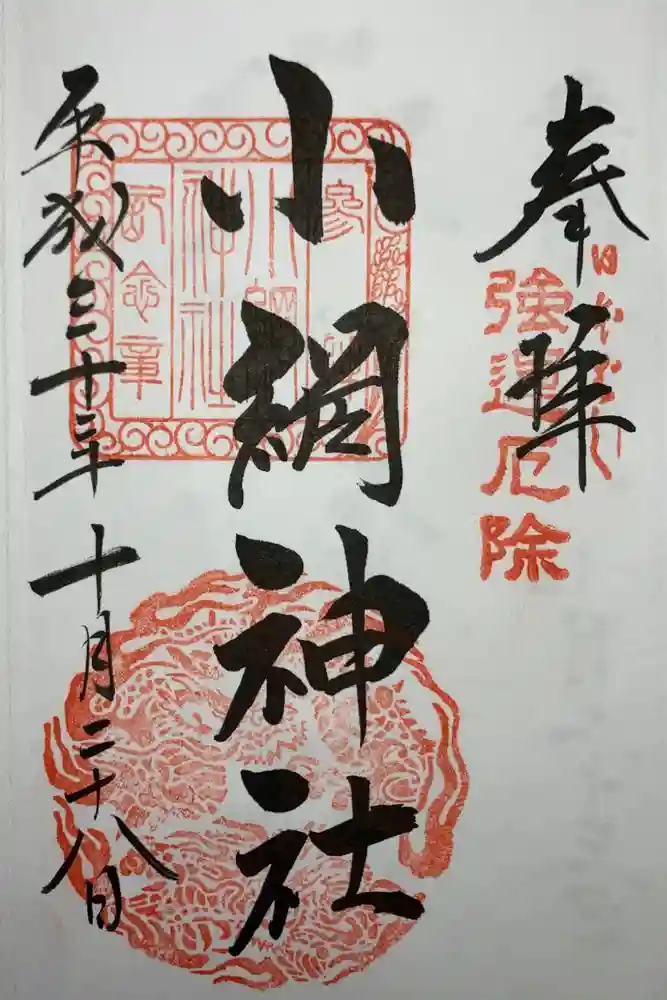 奉拝
日本ばし
強運厄除
小網神社
小網神社
記念章
平成三十年十月二十八日